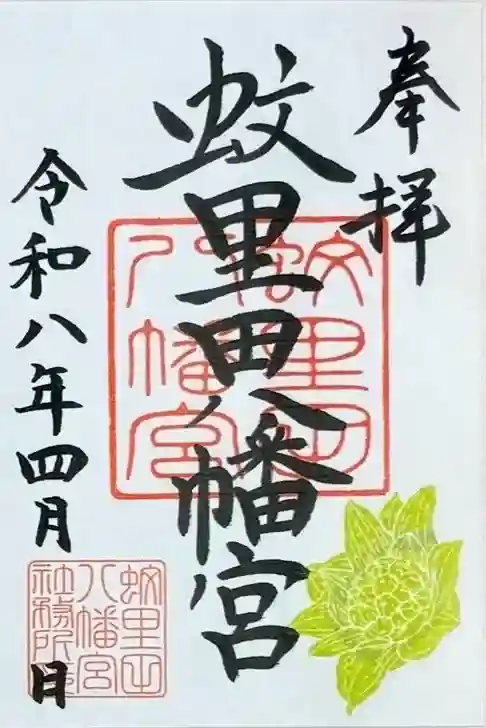 奉拝
蚊里田八幡宮
蚊里田
八幡宮
令和八年四月
日
蚊里田
八幡宮
社務所